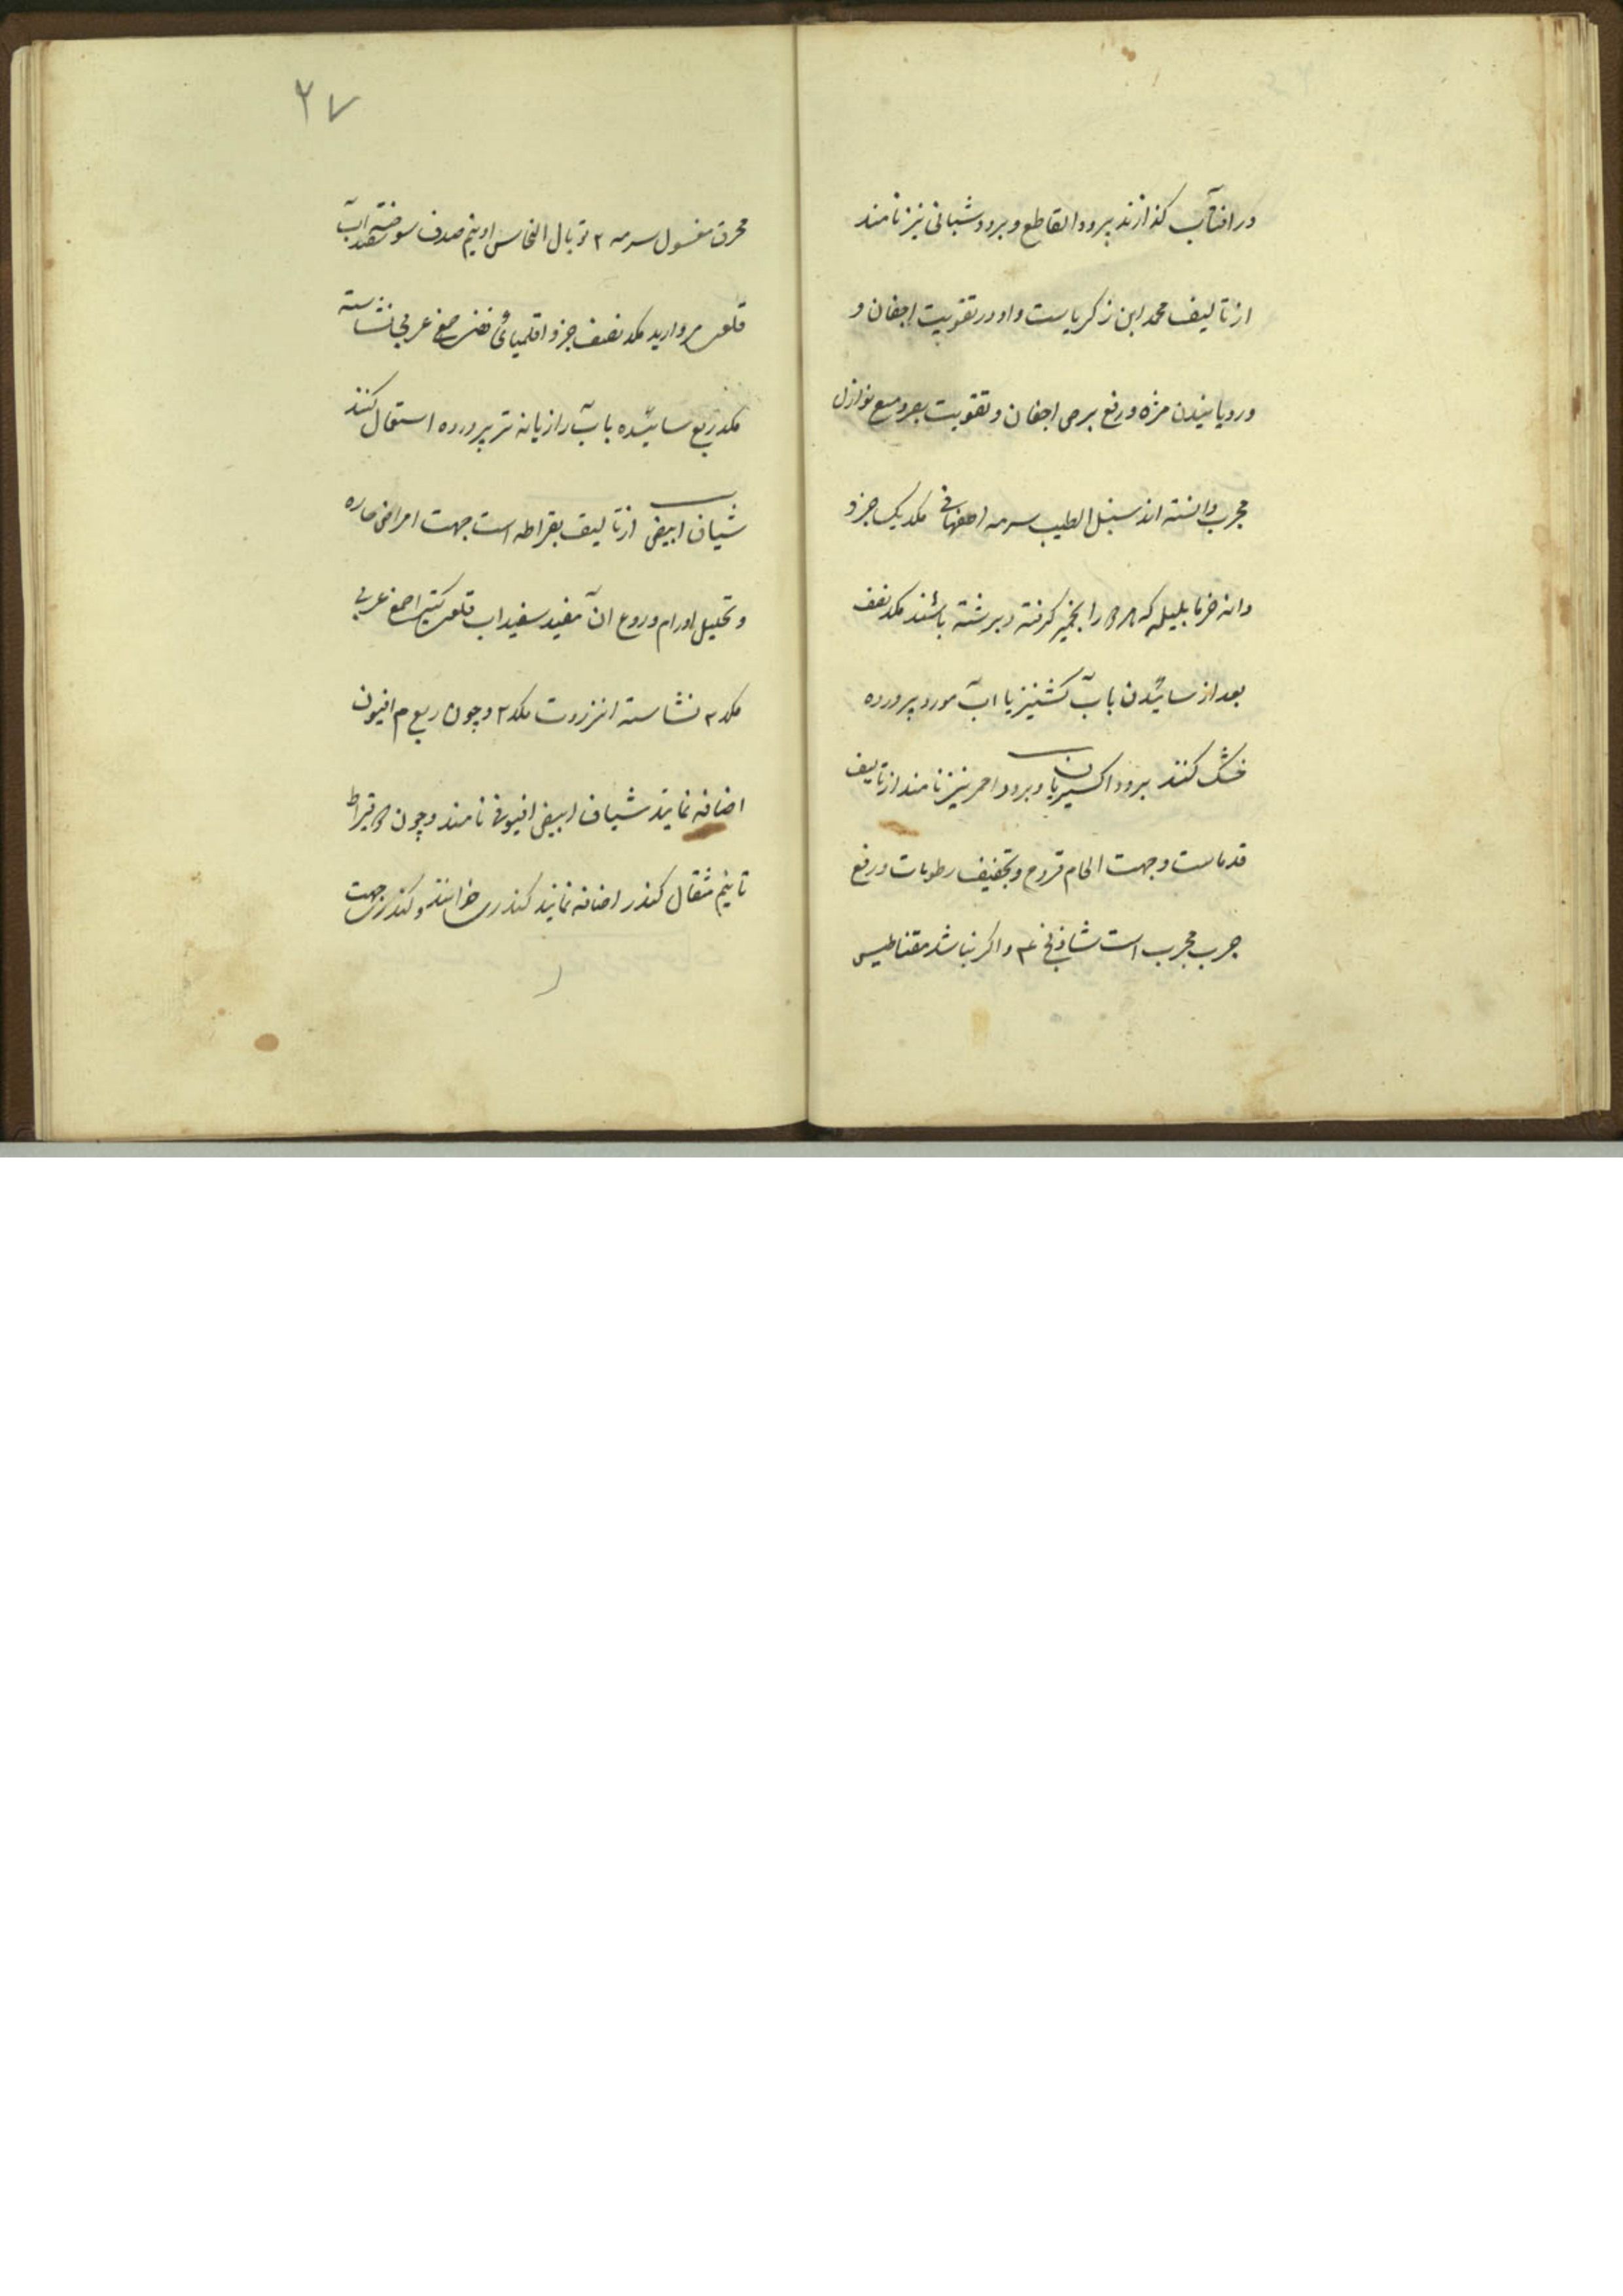 در افتاب گذارند برود القاطع و برود شبانی نیز نامند
از تالیف محمد ابن زکریاست و او در تقویت اجفان و
و رویانیدن مژه و رفع برص اجفان و تقویت بصر و منع نوازل
مجرب دانسته اند سنبل الطیب سرمه اصفهانی مکد یک جزو
دانه خرما بلیله که را بخمیر گرفته و برشته باشند مکد نصف
بعد از سائیدن باب کشنیز یا اب مورد پرورده
خشک کنند برود اکسیریا و برود احمر نیز نامند از تالیف
قدماست و جهت الحام قروح و تجفیف رطوبات و رفع
جرب مجرب است شاذنج ۴ و اگر نباشد مقناطیس
۲۷
محرق مغسول سرمه ۲ توبال النحاس او نیم صدف سوخته سفیداب
قلعی مروارید مکد نصف جزو اقلمیائی فضی صمغ عربی نشاسته
مکد ربع سائیده باب رازیانه تر پرورده استعمال کنند
شیاف ابیض از تالیف بقراط است جهت امراض حاره
و تحلیل اورام و روع ان مفید سفیداب قلعی کتیرا صمغ عربی
مکد ۲ نشاسته انزروت مکد ۲ و چون ربع م افیون
اضافه نمایند شیاف ابیض افیونی نامند و چون قیراط
تا نیم مثقال کندر اضافه نمایند کندری خوانند و کندری جهت